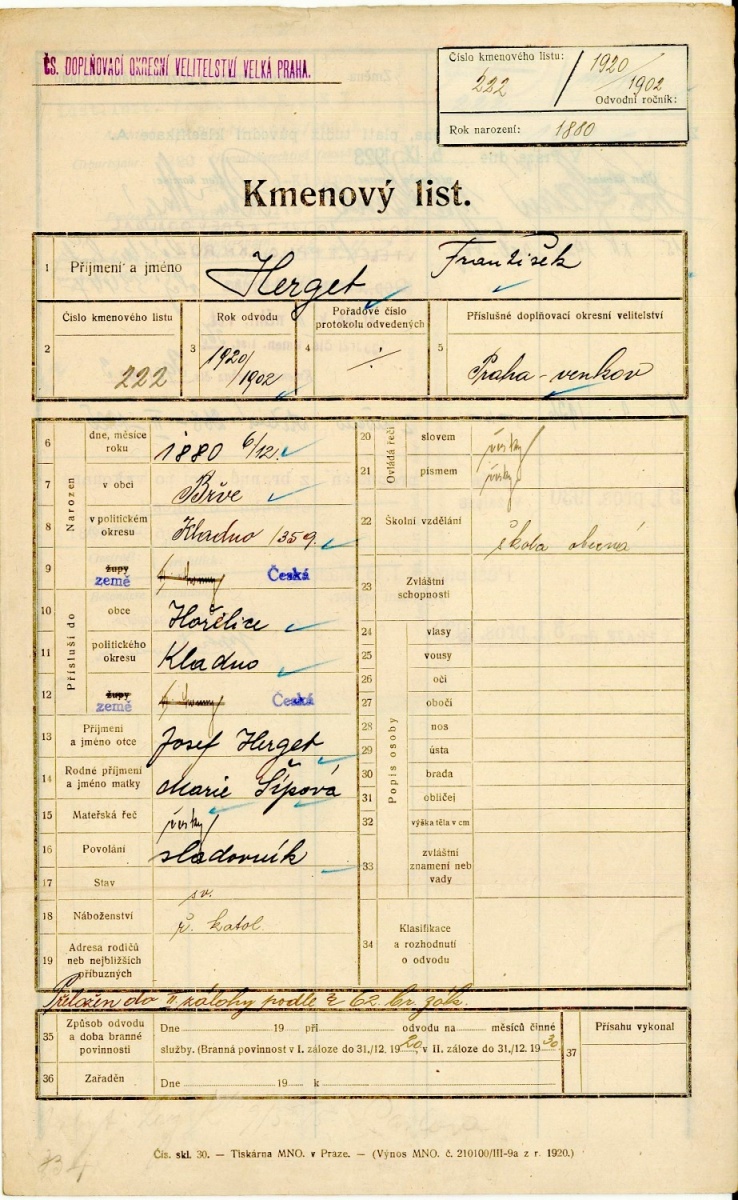 ČS. DOPLŇOVACÍ OKRESNÍ VELITELSTVÍ VELKÁ PRAHA.
Číslo kmenového listu:
222 / 1920/1902
Odvodní ročník:
Rok narození: 1880
Kmenový list.
1 Příjmení a jméno Herget František
2 Číslo kmenového listu 222
3 Rok odvodu 1920/1902
4 Pořadové číslo protokolu odvedených ·/·
5 Příslušné doplňovací okresní velitelství Praha-venkov
Narozen
6 dne, měsíce roku 1880 6/12.
7 v obci Břve
8 v politickém okresu Kladno 1359.
9 župy země Česká
Přísluší do
10 obce Hořelice
11 politického okresu Kladno
12 župy země Česká
13 Příjmení a jméno otce Josef Herget
14 Rodné příjmení a jméno matky Marie Šípová
15 Mateřská řeč česky
16 Povolání sladovník
17 Stav sv.
18 Náboženství ř. katol.
19 Adresa rodičů neb nejbližších příbuzných
Ovládá řeči
20 slovem česky
21 písmem česky
22 Školní vzdělání škola obecná
23 Zvláštní schopnosti
Popis osoby
24 vlasy
25 vousy
26 oči
27 obočí
28 nos
29 ústa
30 brada
31 obličej
32 výška těla v cm
33 zvláštní znamení neb vady
34 Klasifikace a rozhodnutí o odvodu
Přeložen do II. zálohy podle § 62. br. zák.
35 Způsob odvodu a doba branné povinnosti
Dne 19 při odvodu na měsíců činné
služby. (Branná povinnost v I. záloze do 31./12. 1920, v II. záloze do 31./12. 1930.)
36 Zařaděn Dne 19 k
37 Přísahu vykonal
Čís. skl. 30. — Tiskárna MNO. v Praze. — (Výnos MNO. č. 210100/III-9a z r. 1920.)